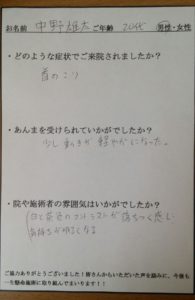 お名前 中野雄太 ご年齢 20代 男性・女性
・どのような症状でご来院されましたか？
首のコリ
・あんまを受けられていかがでしたか？
少し動きが軽やかになった。
・院や施術者の雰囲気はいかがでしたか？
白と茶色のコントラストが落ちつく感じ
気持ちが明るくなる
ご協力ありがとうございました！皆さんからいただいた声を励みに、今後も
一生懸命施術に取り組んでまいります！！